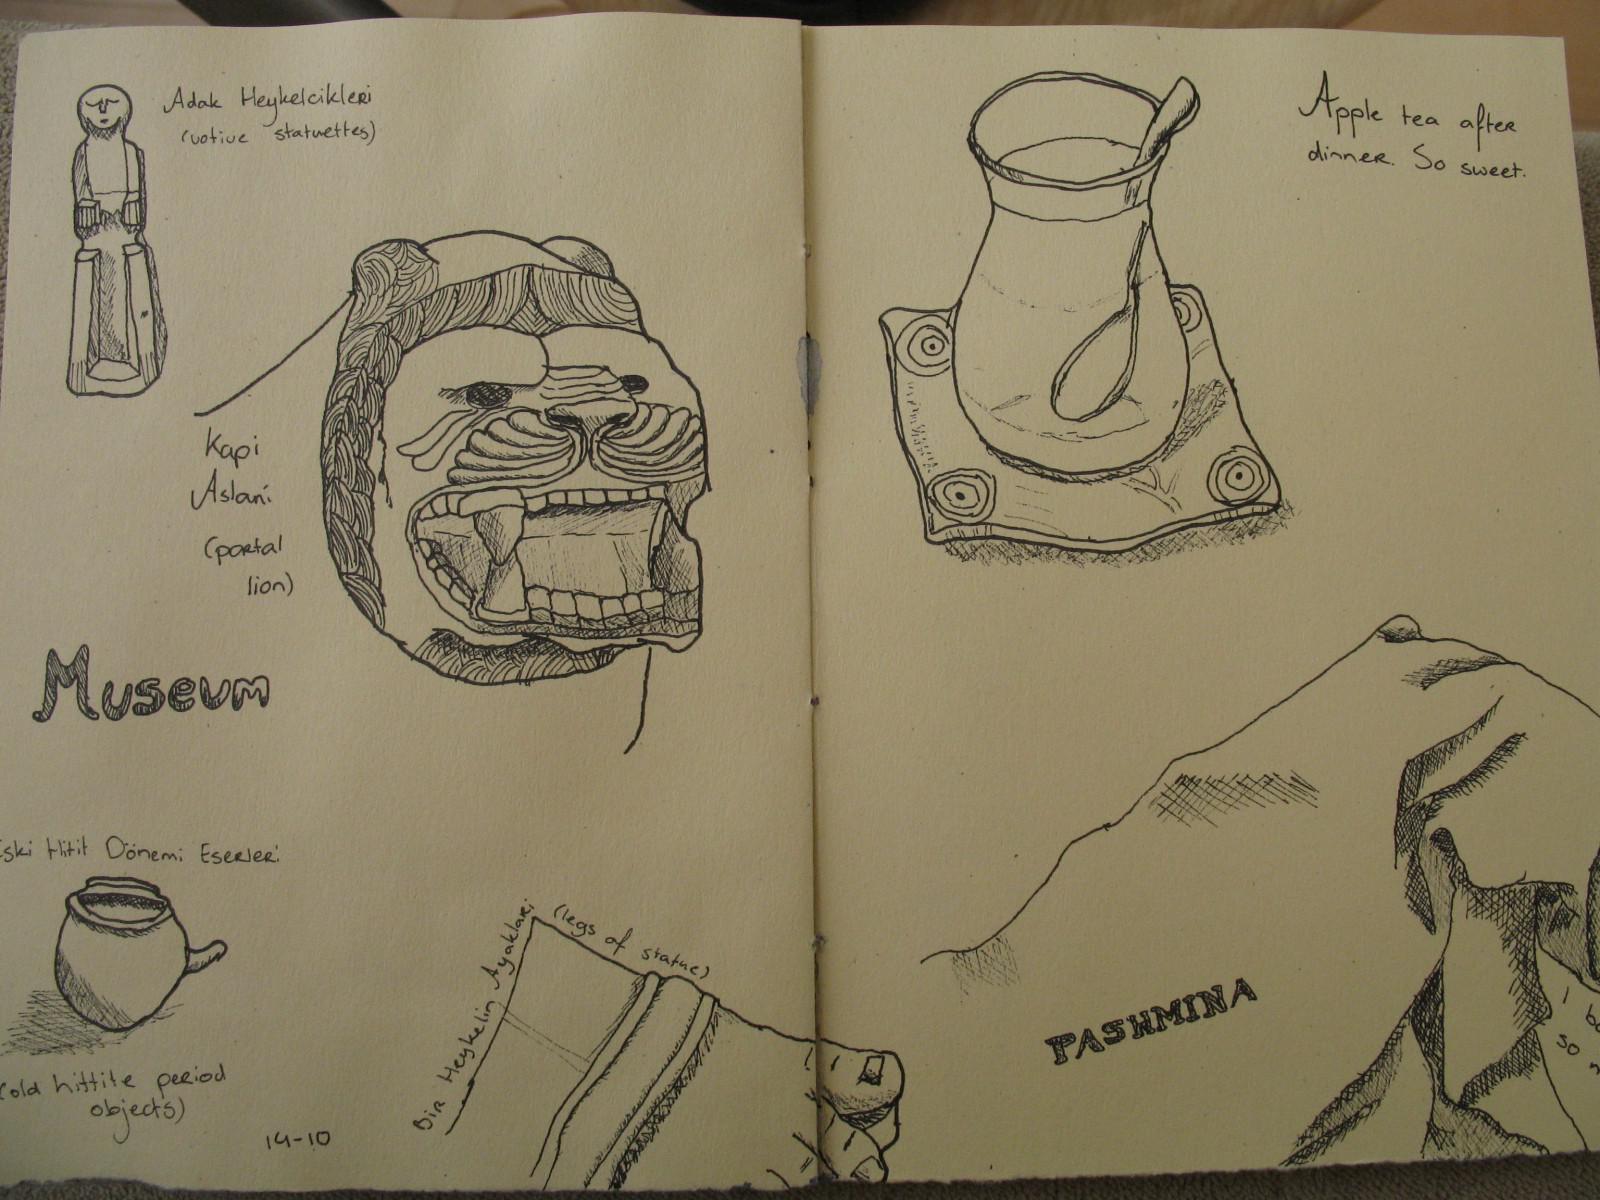 Adak Heykelcikleri
(votive statuettes)
Kapi
Aslani
(portal
lion)
Museum
Eski Hitit Dönemi Eserleri
(old hittite period
objects)
14-10
Bir Heykelin Ayaklari
(legs of statue)
Apple tea after
dinner. So sweet.
PASHMINA
I
so